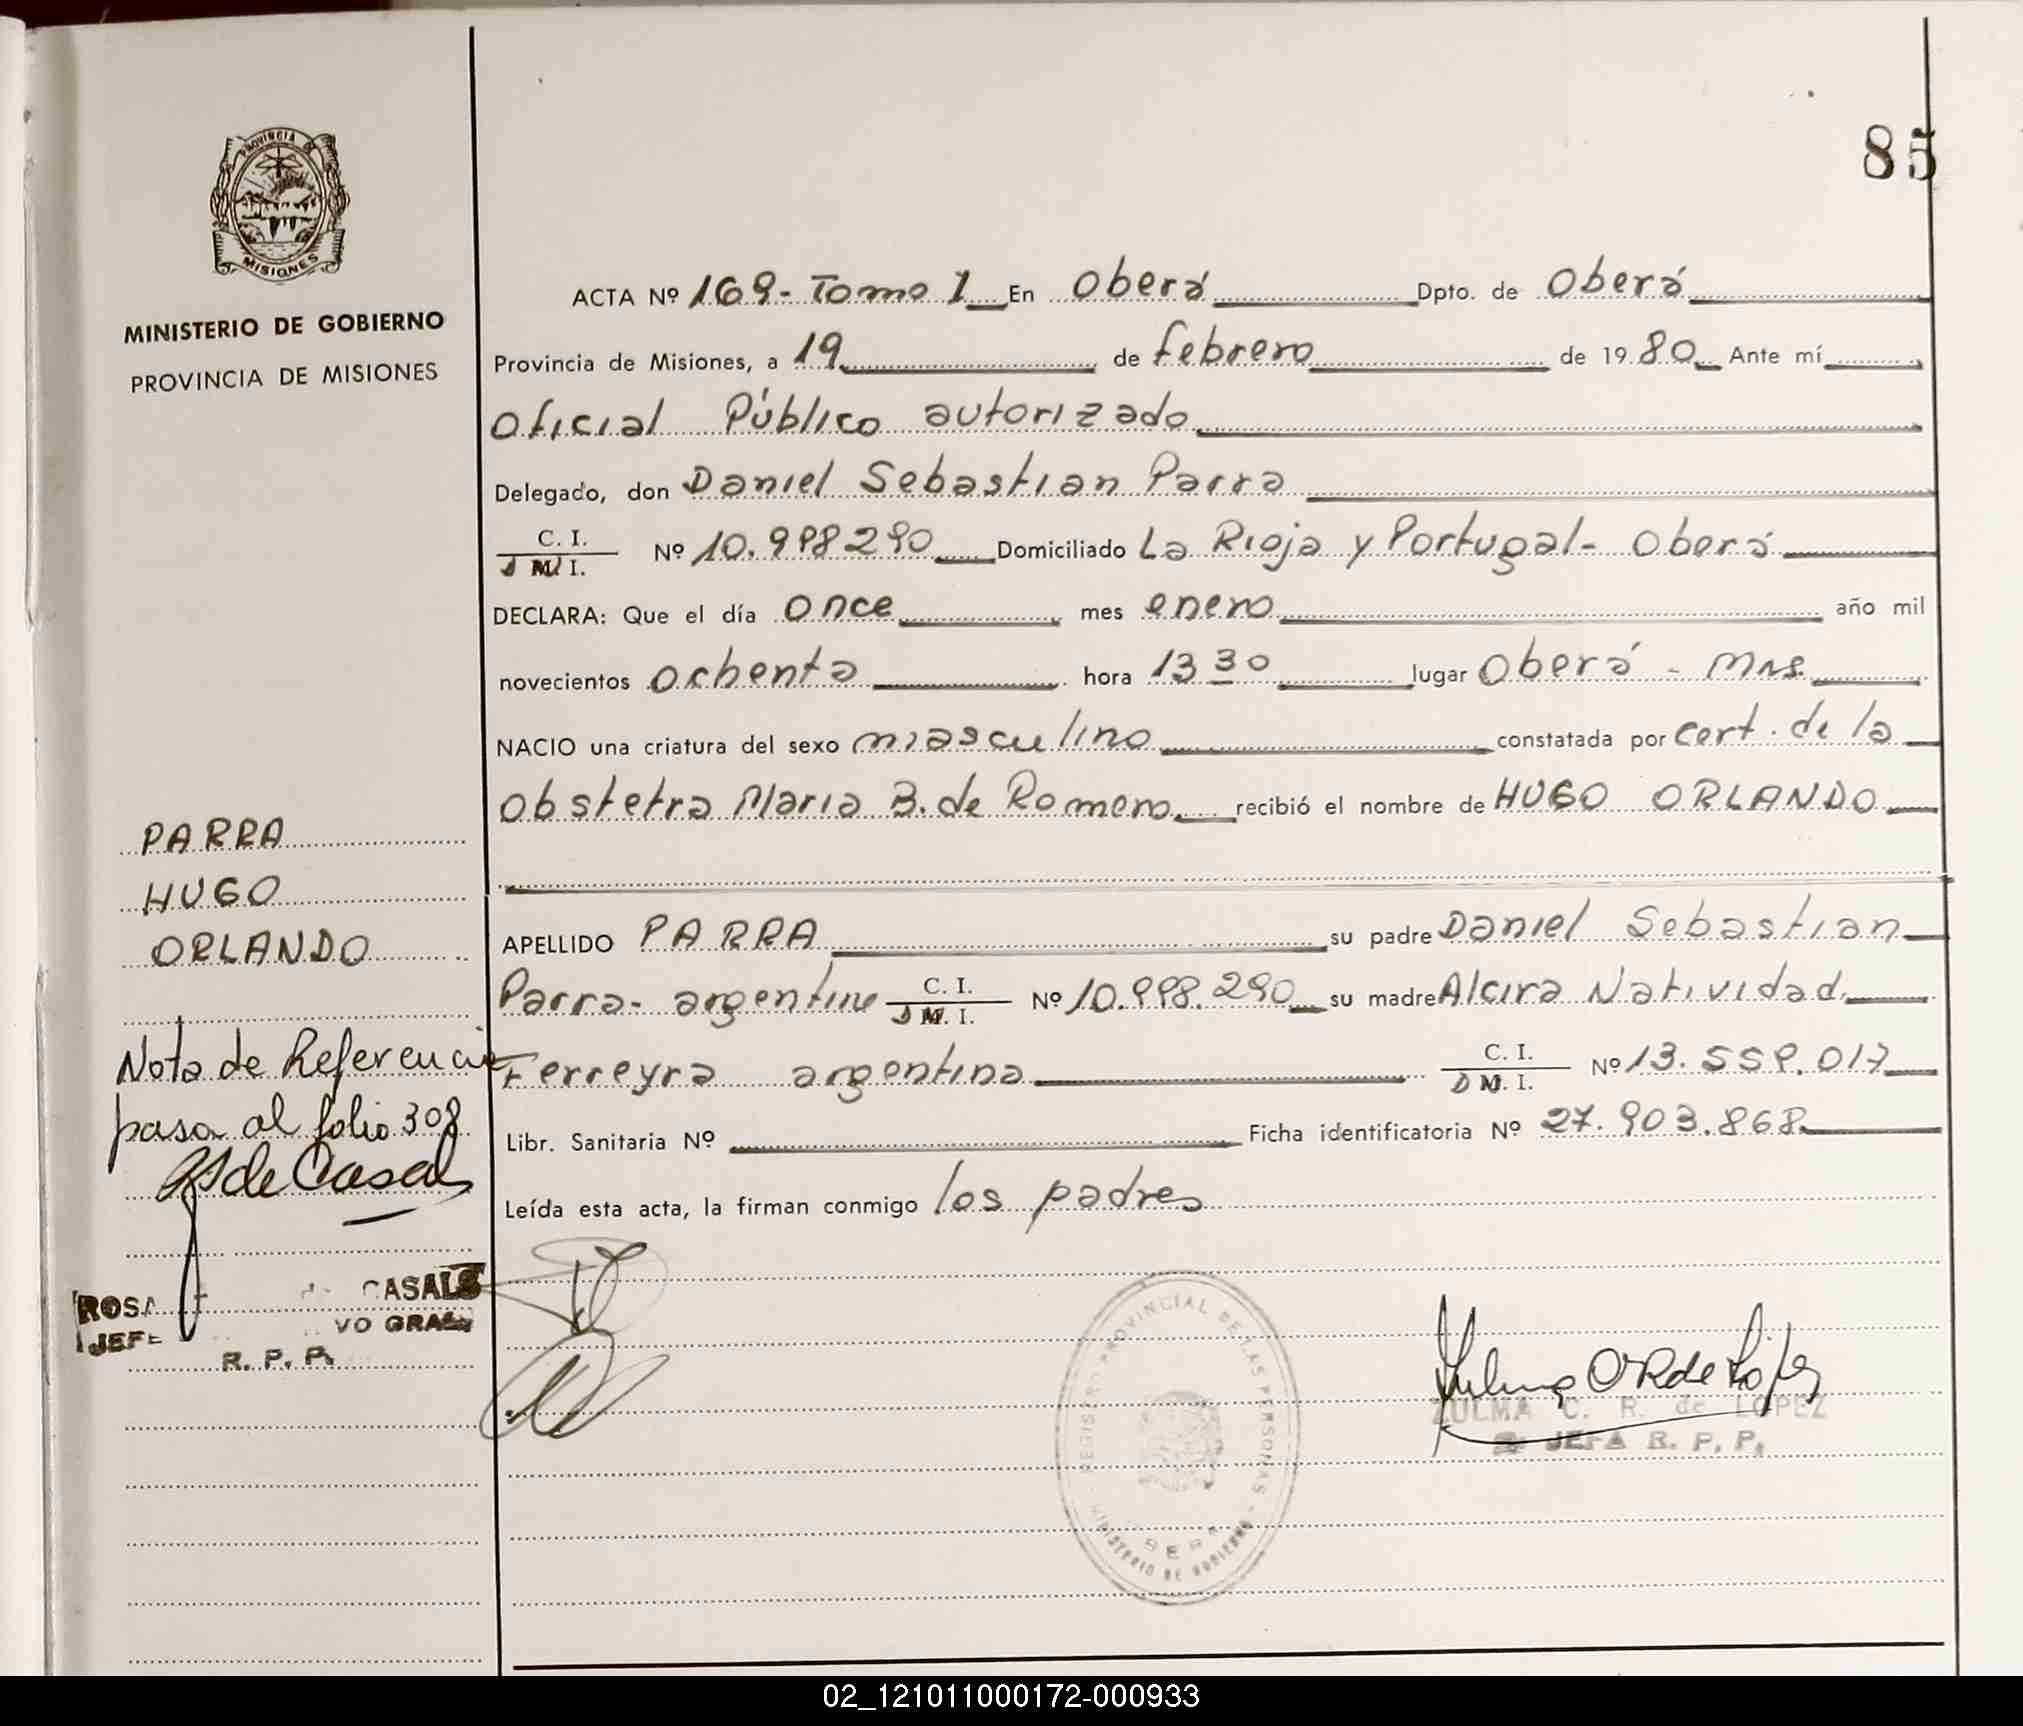 85
PROVINCIA DE
MISIONES
MINISTERIO DE GOBIERNO
PROVINCIA DE MISIONES
ACTA Nº 169 - Tomo 1 En Oberá Dpto. de Oberá
Provincia de Misiones, a 19 de febrero de 1980 Ante mí
Oficial Público autorizado
Delegado, don Daniel Sebastian Parra
C. I.
D M. I. Nº 10.998290 Domiciliado La Rioja y Portugal - Oberá
DECLARA: Que el día once mes enero año mil
novecientos ochenta hora 13 30 lugar Oberá - Mns.
NACIO una criatura del sexo masculino constatada por cert. de la
Obstetra Maria B. de Romero recibió el nombre de HUGO ORLANDO
APELLIDO PARRA su padre Daniel Sebastian
Parra - argentino C. I.
D M. I. Nº 10.998.290 su madre Alcira Natividad
Ferreyra argentina C. I.
D M. I. Nº 13.559.017
Libr. Sanitaria Nº Ficha identificatoria Nº 27.903.868
Leída esta acta, la firman conmigo los padres
PARRA
HUGO
ORLANDO
Nota de Referencia
pasa al folio 308
de Casals
ROSA CASALS
JEFE VO GRAL
R. P. P.
REGISTRO PROVINCIAL DE LAS PERSONAS
MINISTERIO DE GOBIERNO
Zulma C R de López
ZULMA C. R. de LOPEZ
JEFA R. P. P.
02_121011000172-000933